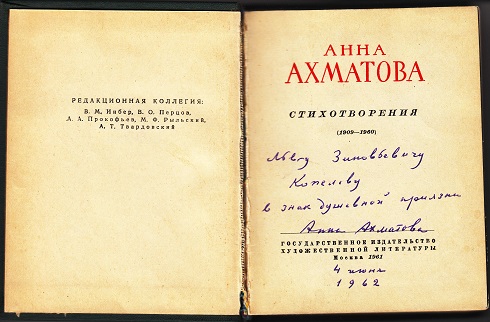 РЕДАКЦИОННАЯ КОЛЛЕГИЯ:
В. М. Инбер, В. О. Перцов,
А. А. Прокофьев, М. Ф. Рыльский,
А. Т. Твардовский
АННА
АХМАТОВА
СТИХОТВОРЕНИЯ
(1909—1960)
Льву Зиновьевичу
Копелеву
в знак душевной приязни
Анна Ахматова
ГОСУДАРСТВЕННОЕ ИЗДАТЕЛЬСТВО
ХУДОЖЕСТВЕННОЙ ЛИТЕРАТУРЫ
Москва 1961
4 июня
1962